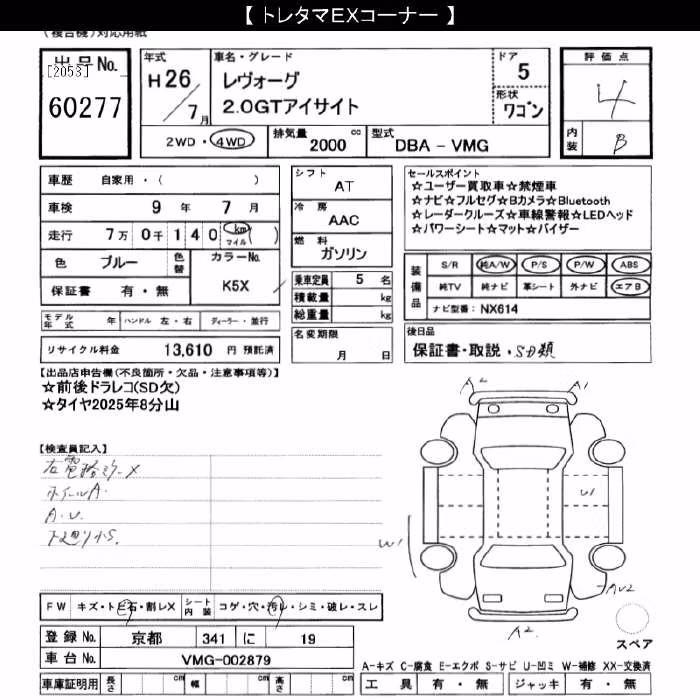 【 トレタマEXコーナー 】
(複合機)対応用紙
出品No.
[2053]
60277
年式
H26/7月
車名・グレード
レヴォーグ
2.0GTアイサイト
ドア
5
形状
ワゴン
2WD・4WD
排気量 2000 cc
型式 DBA - VMG
評価点
4
内装 B
車歴 自家用・( )
車検 9年 7月
走行 7万 0千 1 4 0 km マイル ( )
色 ブルー 色替 カラーNo. K5X
保証書 有・無
シフト AT
冷房 AAC
燃料 ガソリン
乗車定員 5 名
積載量 kg
総重量 kg
セールスポイント
☆ユーザー買取車☆禁煙車
☆ナビ☆フルセグ☆Bカメラ☆Bluetooth
☆レーダークルーズ☆車線警報☆LEDヘッド
☆パワーシート☆マット☆バイザー
装備品
S/R 純A/W P/S P/W ABS
純TV 純ナビ 革シート 外ナビ エアB
ナビ型番: NX614
モデル年式 年 ハンドル 左・右 ディーラー・並行
リサイクル料金 13,610 円 預託済
名変期限
月 日
後日品
保証書・取説、SD類
【出品店申告欄(不良箇所・欠品・注意事項等)】
☆前後ドラレコ(SD欠)
☆タイヤ2025年8分山
【検査員記入】
右電格ミラーX
ホイールA.
A・U.
下廻り小S.
A2
A1
U1
W1
AU2
A2
スペア
FW キズ・トビ石・割レX シート内装 コゲ・穴・汚レ・シミ・破レ・スレ
登録No. 京都 341 に 19
車台No. VMG-002879
車庫証明用 長さ cm 幅 cm 高さ cm
A-キズ C-腐食 E-エクボ S-サビ U-凹ミ W-補修 XX-交換済
工具 有・無 ジャッキ 有・無